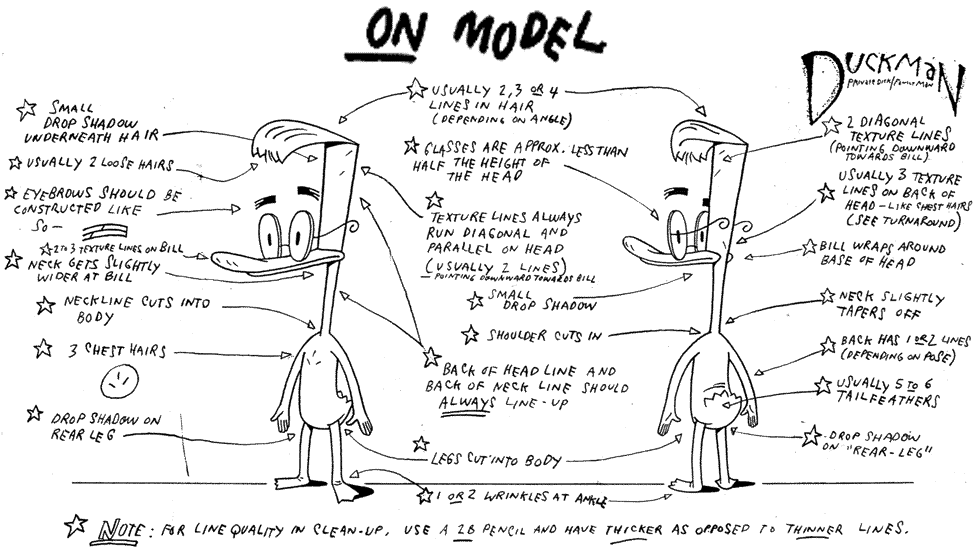 ON MODEL
DUCKMAN
PRIVATE DICK/FAMILY MAN
SMALL
DROP SHADOW
UNDERNEATH HAIR
USUALLY 2 LOOSE HAIRS
EYEBROWS SHOULD BE
CONSTRUCTED LIKE
SO—
2 TO 3 TEXTURE LINES ON BILL
NECK GETS SLIGHTLY
WIDER AT BILL
NECKLINE CUTS INTO
BODY
3 CHEST HAIRS
DROP SHADOW ON
REAR LEG
USUALLY 2, 3 OR 4
LINES IN HAIR
(DEPENDING ON ANGLE)
GLASSES ARE APPROX. LESS THAN
HALF THE HEIGHT OF
THE HEAD
TEXTURE LINES ALWAYS
RUN DIAGONAL AND
PARALLEL ON HEAD
(USUALLY 2 LINES)
—POINTING DOWNWARD TOWARDS BILL
SMALL
DROP SHADOW
SHOULDER CUTS IN
BACK OF HEAD LINE AND
BACK OF NECK LINE SHOULD
ALWAYS LINE-UP
LEGS CUT INTO BODY
1 OR 2 WRINKLES AT ANKLE
2 DIAGONAL
TEXTURE LINES
(POINTING DOWNWARD
TOWARDS BILL)
USUALLY 3 TEXTURE
LINES ON BACK OF
HEAD—LIKE CHEST HAIRS
(SEE TURNAROUND)
BILL WRAPS AROUND
BASE OF HEAD
NECK SLIGHTLY
TAPERS OFF
BACK HAS 1 OR 2 LINES
(DEPENDING ON POSE)
USUALLY 5 TO 6
TAILFEATHERS
DROP SHADOW
ON "REAR-LEG"
NOTE: FOR LINE QUALITY IN CLEAN-UP, USE A 2B PENCIL AND HAVE THICKER AS OPPOSED TO THINNER LINES.